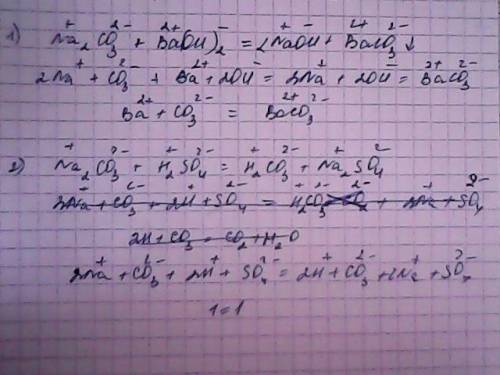 1) Na₂⁺CO₃²⁻ + Ba²⁺(OH)₂⁻ = 2Na⁺OH⁻ + Ba²⁺CO₃²⁻ ↓
2Na⁺ + CO₃²⁻ + Ba²⁺ + 2OH⁻ = 2Na⁺ + 2OH⁻ = Ba²⁺CO₃²⁻
Ba²⁺ + CO₃²⁻ = Ba²⁺CO₃²⁻
2) Na₂⁺CO₃²⁻ + H₂⁺SO₄²⁻ = H₂⁺CO₃²⁻ + Na₂⁺SO₄²⁻
2Na⁺ + CO₃²⁻ + 2H⁺ + SO₄²⁻ = H₂⁺CO₃²⁻ + 2Na⁺ + SO₄²⁻
2H + CO₃ = CO₂ + H₂O
2Na⁺ + CO₃²⁻ + 2H⁺ + SO₄²⁻ = 2H⁺ + CO₃²⁻ + 2Na⁺ + SO₄²⁻
1 = 1